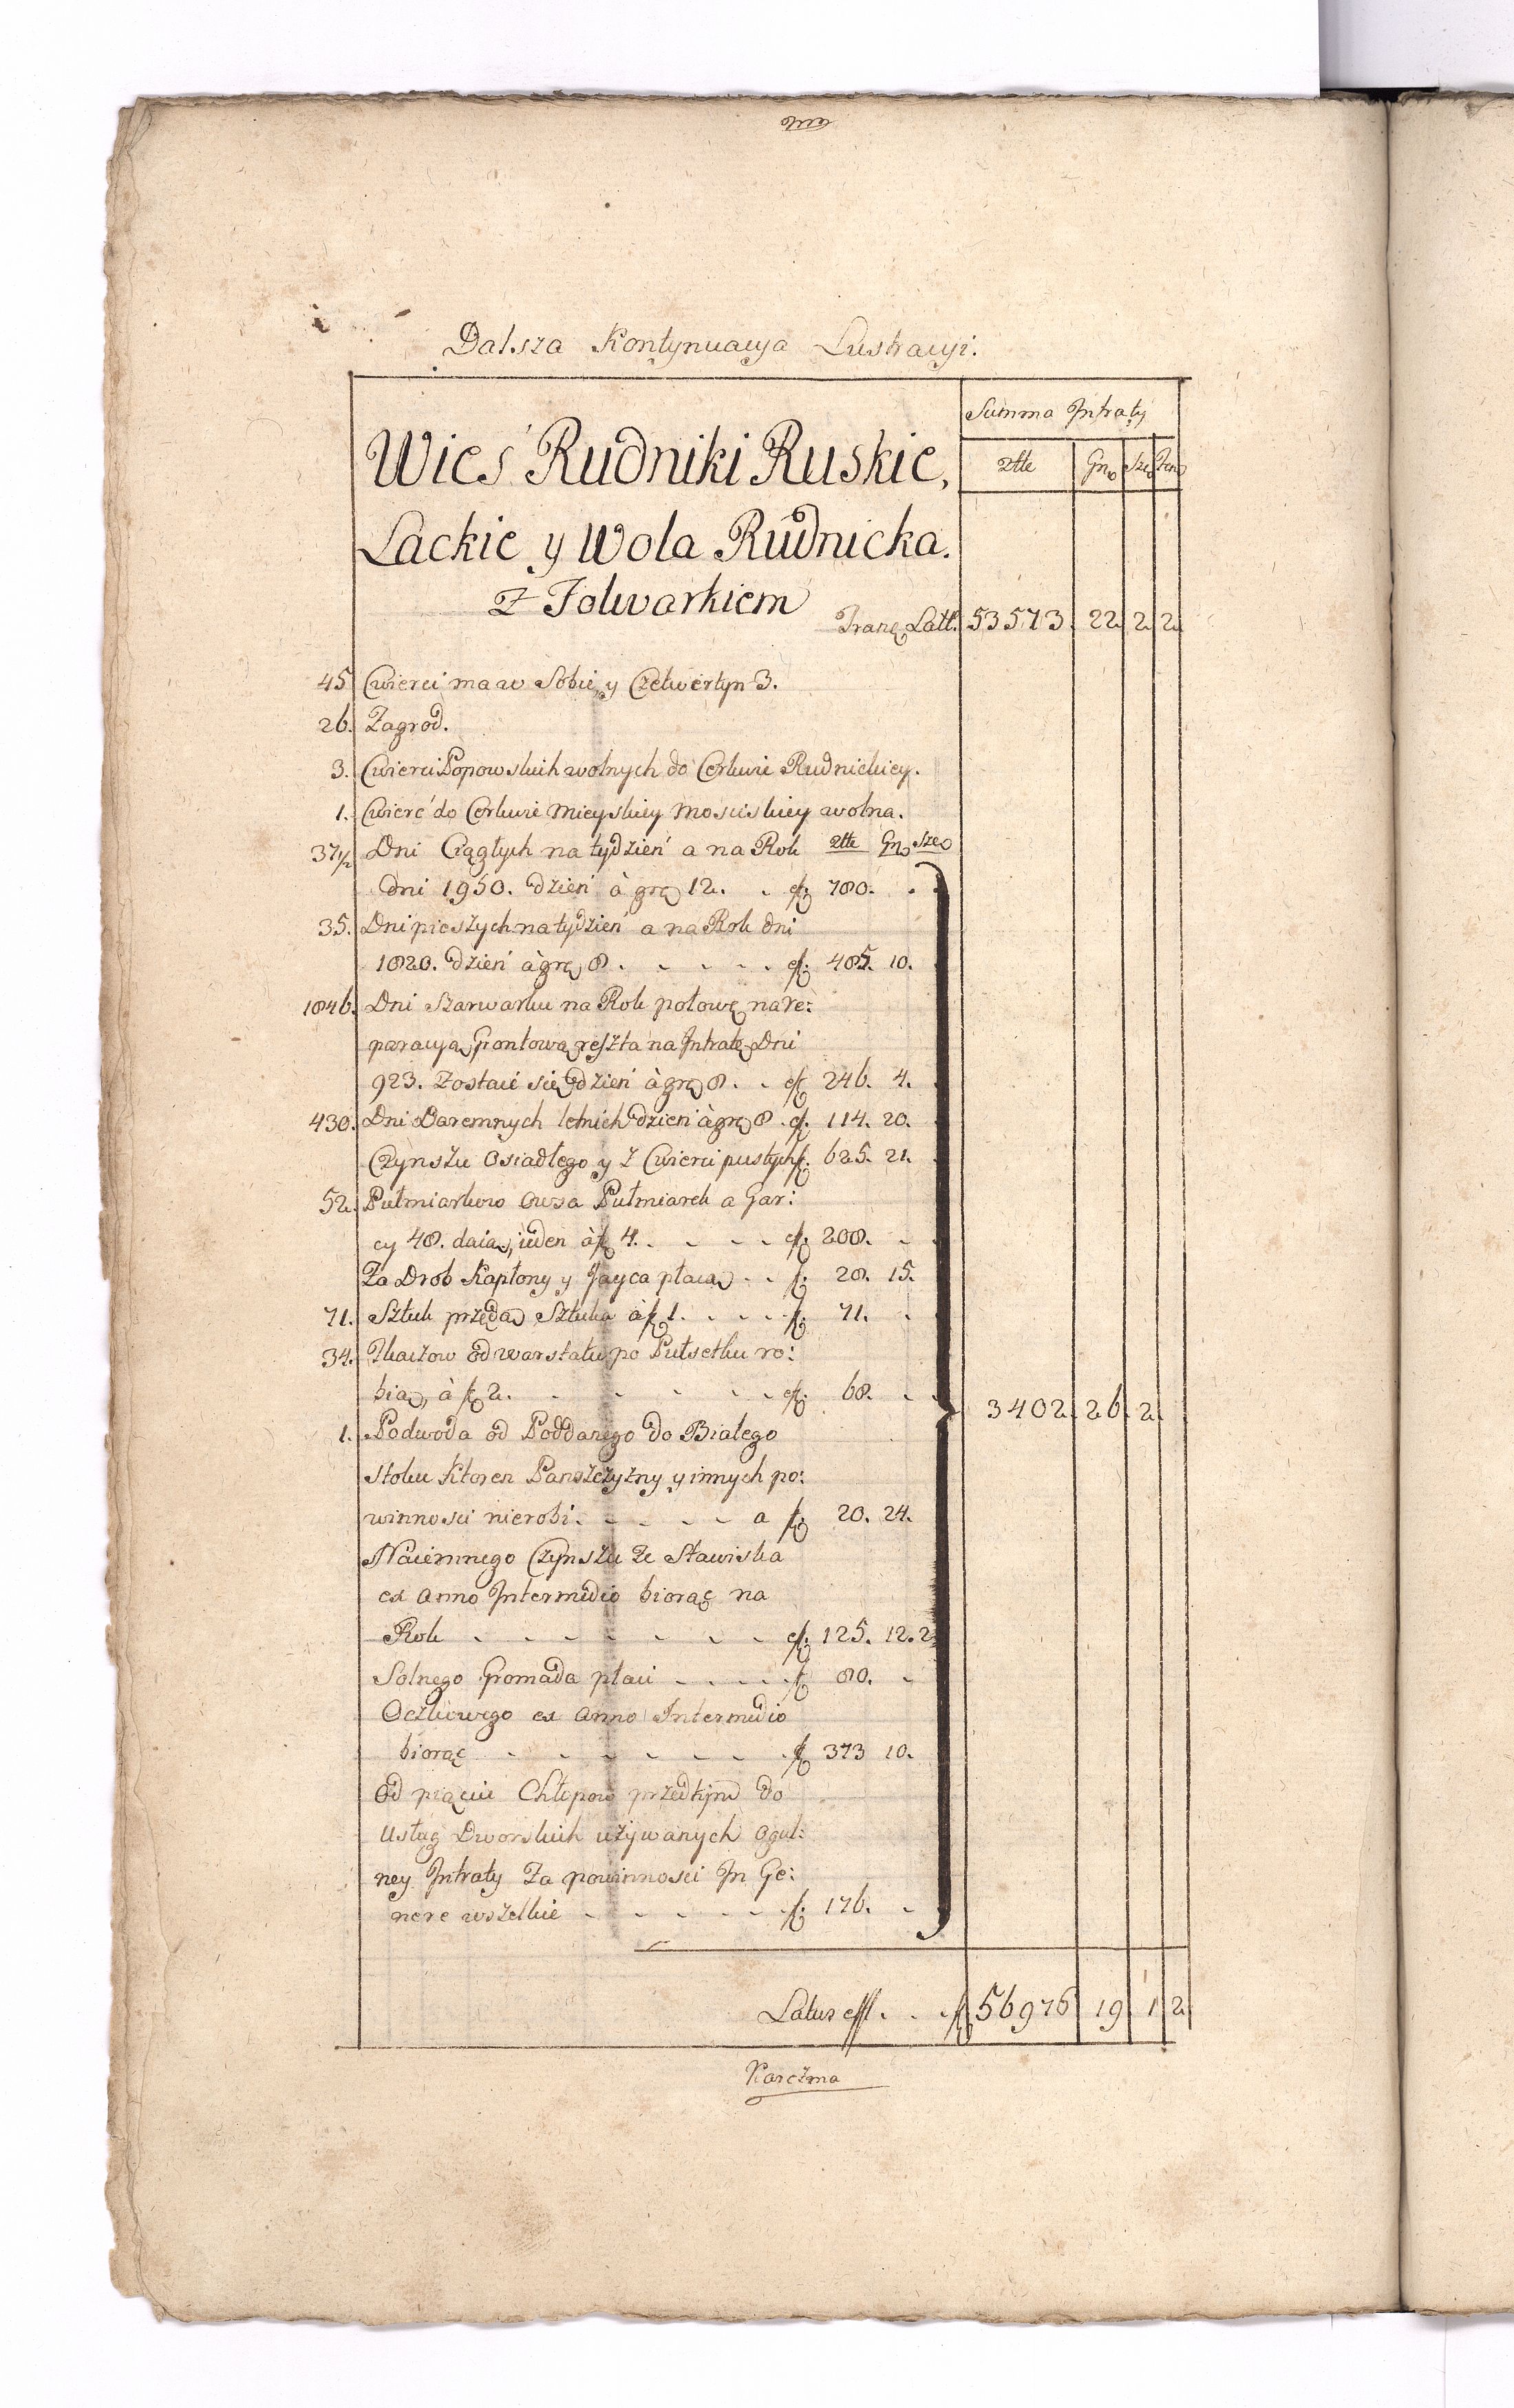 Dalsza Kontynuacya Lustracyi.
Summa Intraty
Wieś Rudniki Ruskie,
złłe Gr Sze Den
Lackie y Wola Rudnicka.
Z Folwarkiem
Trans. Latt. 53573. 22. 2. 2.
45 Cwierci ma w Sobie, y Czetwertyn 3.
26. Zagrod.
3. Cwierci Popowskich wolnych do Cerkwie Rudnickiey.
1. Cwierć do Cerkwie Mieyskiey Mosciskiey wolna.
37 1/2 Dni Ciągłych na tydzień a na Rok złłe Gr Sze
dni 1950. dzień à grę 12. . ef. 780. . .
35. Dni pieszych na tydzień a na Rok dni
1820. dzień à grę 8. . . . . ef. 485. 10.
1846. Dni Szarwarku na Rok połowę na re:
paracyą Grontową reszta na Intratę Dni
923. Zostaie się dzień à grę 8. . ef. 246. 4.
430. Dni Daremnych letnich dzień à grę 8. ef. 114. 20.
Czynszu Osiadłego y z Cwierci pustych f. 625. 21.
52. Pułmiarkow Owsa Pułmiarek a Gar:
cy 48. daią, ieden à f 4. . . . . ef. 208. .
Za Drob Kapłony y Jayca płacą . . f. 28. 15.
71. Sztuk przędą Sztuka à f 1. . . . . f. 71. .
34. Tkaczow od warstatu po Pułsetku ro:
bią, à f 2. . . . . . ef. 68. . .
3402. 26. 2.
1. Podwoda od Poddanego do Białego
stoku Ktoren Panszczyzny y innych po:
winnosci nierobi. . . . . a f. 20. 24.
Naiemnego Czynszu ze Stawiska
ex Anno Intermedio biorąc na
Rok . . . . . . . ef. 125. 12. 2.
Solnego Gromada płaci . . . . f. 80. .
Oczkowego ex Anno Intermedio
biorąc . . . . . . . f 373 10.
Od pięciu Chłopow przedtym do
Usług Dworskich używanych ogul:
ney Intraty Za powinnosci In Ge:
nere wszelkie . . . . . . f. 176. .
Latus eff. . . f 56976 19 1 2.
Karczma